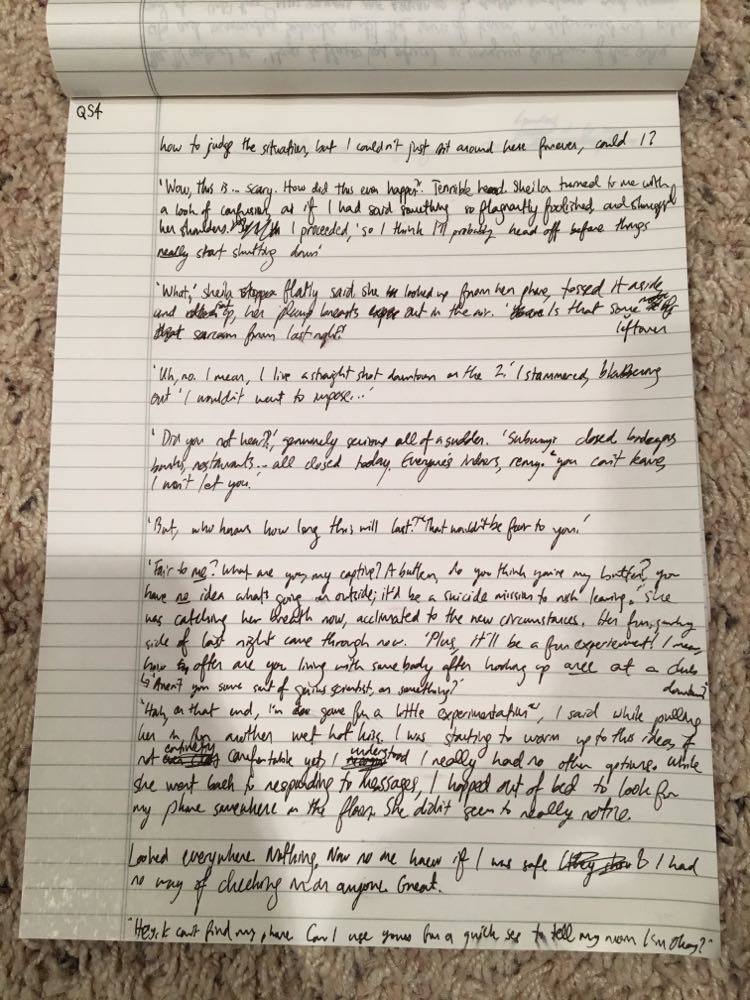 QS4
how to judge the situation, but I couldn't just sit around here forever, could I?
'Wow, this is... scary. How did this even happen? Terrible head. Sheila turned to me with
a look of confusion, as if I had said something so flagrantly foolished, and shrugged
her shoulders. I proceeded, 'so I think I'll probably head off before things
really start shutting down'
'What,' Sheila flatly said she looked up from her phone, tossed it aside
and up, her plump breasts out in the air. 'Is that some
leftover
sarcasm from last night?'
'Uh, no. I mean, I live a straight shot downtown on the 2.' I stammered,
out 'I wouldn't want to impose...'
'Did you not hear?', genuinely serious all of a sudden. 'Subways closed bodegas
banks, restaurants... all closed today. Everyone's indoors, you can't leave,
I won't let you.'
'But, who knows how long this will last? That wouldn't be fair to you.'
'Fair to me? What are you, my captive? A butler, do you think you're my butler? You
have no idea what's going on outside; it'd be a suicide mission to risk leaving.' She
was catching her breath now, acclimated to the new circumstances. Her fun,
side of last night came through now. 'Plus, it'll be a fun experiment! I mean,
how often are you living with somebody after hooking up at a club
downtown?
Aren't you some sort of genius scientist, or something?'
'Hah, on that end, I'm game for a little experimentation', I said while pulling
her in for another wet hot kiss. I was starting to warm up to this idea, if
not entirely comfortable yet, I understood I really had no other options. While
she went back to responding to messages, I hopped out of bed to look for
my phone somewhere on the floor. She didn't seem to really notice.
Looked everywhere. Nothing. Now no one knew if I was safe & I had
no way of checking in on anyone. Great.
'Hey, I can't find my phone. Can I use yours for a quick sec to tell my mom I'm okay?'